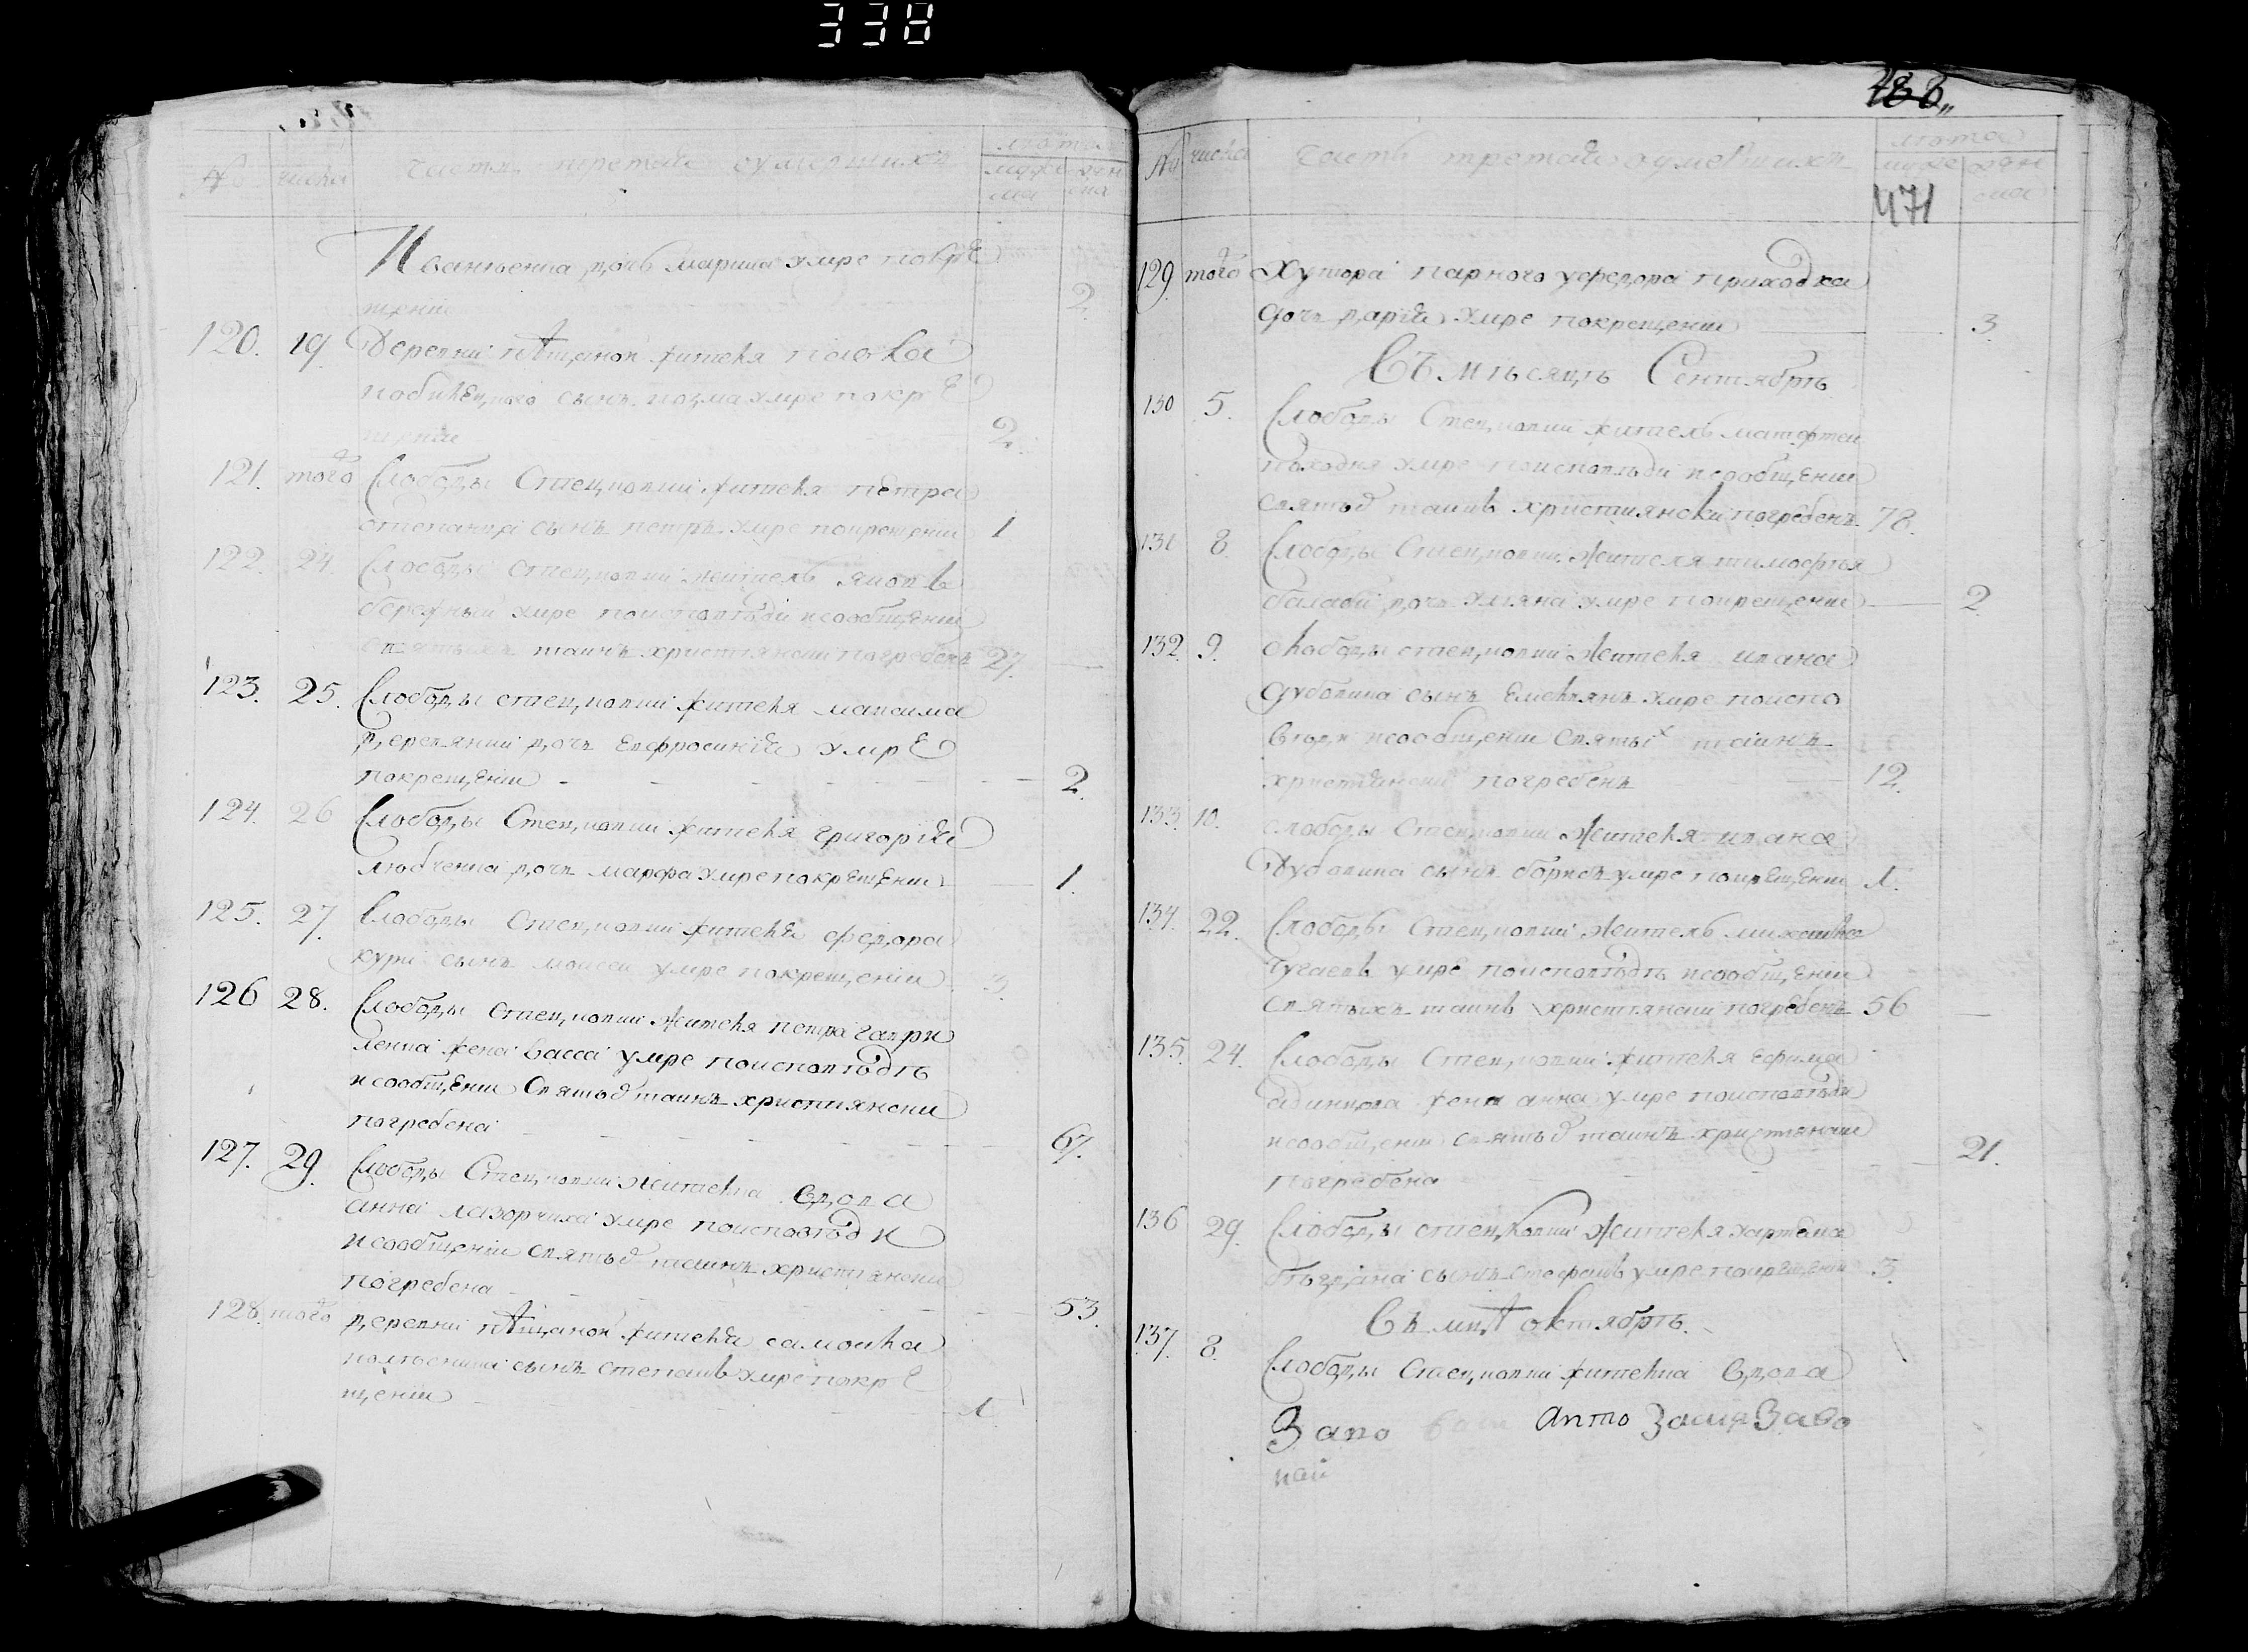 338
№ числа Часть третая оумершихъ лѣта
муже ска жен ска
Иваненка дочь Марина умре покре
щении 2
120. 19 Деревни пѣщаной жителя Павла
сынъ козма умре покре
щении 2.
121. того Слободы Стецковки жителя петра
степанца сынъ петръ умре покрещении 1
122. 24. Слободы Стецковки житель яковъ
бережный умре поисповѣди исообщении
святыхъ таинъ христиански погребенъ 27.
123. 25. Слободы стецковки жителя максима
деревянки дочь Евфросиния умре
покрещении 2.
124. 26 Слободы Стецковки жителя григория
любченка дочь марфа умре покрещении 1.
125. 27. Слободы Стецковки жителя федора
кури сынъ моисей умре покрещении 3.
126 28. Слободы Стецковки жителя петра гаври
ленка жена васса умре поисповѣдѣ
исообщении Святыхъ таинъ християнски
погребена 67.
127. 29. Слободы Стецковки жителка вдова
анна лазорчиха умре поисповѣди
исообщении святыхъ таинъ християнски
погребена 53.
128. того деревни пѣщаной жителя самойла
колѣсника сынъ степанъ умре покре
щении 1
488
№ числа Часть третая оумершихъ лѣта
муже жен ска
471
129 того Хутора парного уфедора приходка
дочь дария умре покрещении 3.
Въ мѣсяцѣ Сентябрѣ
130 5. Слободы Стецковки житель матфей
походня умре поисповѣди исообщении
святыхъ таинъ християнски погребенъ 78.
131 8. Слободы Стецковки жителя тимофѣя
балабы дочь уляна умре покрещении 2
132. 9. слободы стецковки жителя ивана
дубовика сынъ Емелиянъ умре поиспо
вѣди исообщении Святыхъ таинъ
християнски погребенъ 12.
133 10. слободы Стецковки жителя ивана
Дубовика сынъ борисъ умре покрещении 1.
134. 22. Слободы Стецковки житель михайла
чугаевъ умре поисповѣдѣ исообщении
святыхъ таинъ християнски погребенъ 56
135. 24. Слободы Стецковки жителя ефима
одинцова жена анна умре поисповѣди
исообщении святыхъ таинъ християнски
погребена 21.
136 29. Слободы стецковки жителя хартема
сынъ стефанъ умре покрещении 3.
Въ мцѣ октябрѣ.
137. 8. Слободы Стецковки жителка вдова